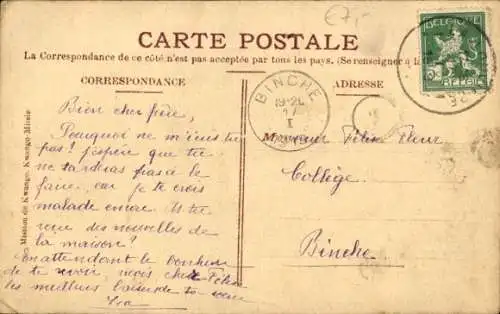 €7,-
CARTE POSTALE
La Correspondance de ce côté n'est pas acceptée par tous les pays. (Se renseigner à la
CORRESPONDANCE
ADRESSE
BELGIQUE
BELGIË
BINCHE
19-20
I
Bien cher frère,
Pourquoi ne m'écris tu
pas? j'espère que tu
ne tardras pas à le
faire, car je te crois
malade encore. As tu
reçu des nouvelles de
la maison?
En attendant le bonheur
de te revoir, reçois cher Félix
les meilleurs baisers de ta sœur
Monsieur Félix Fleur
Collège
Binche
Mission du Kwango. Kwango-Missie